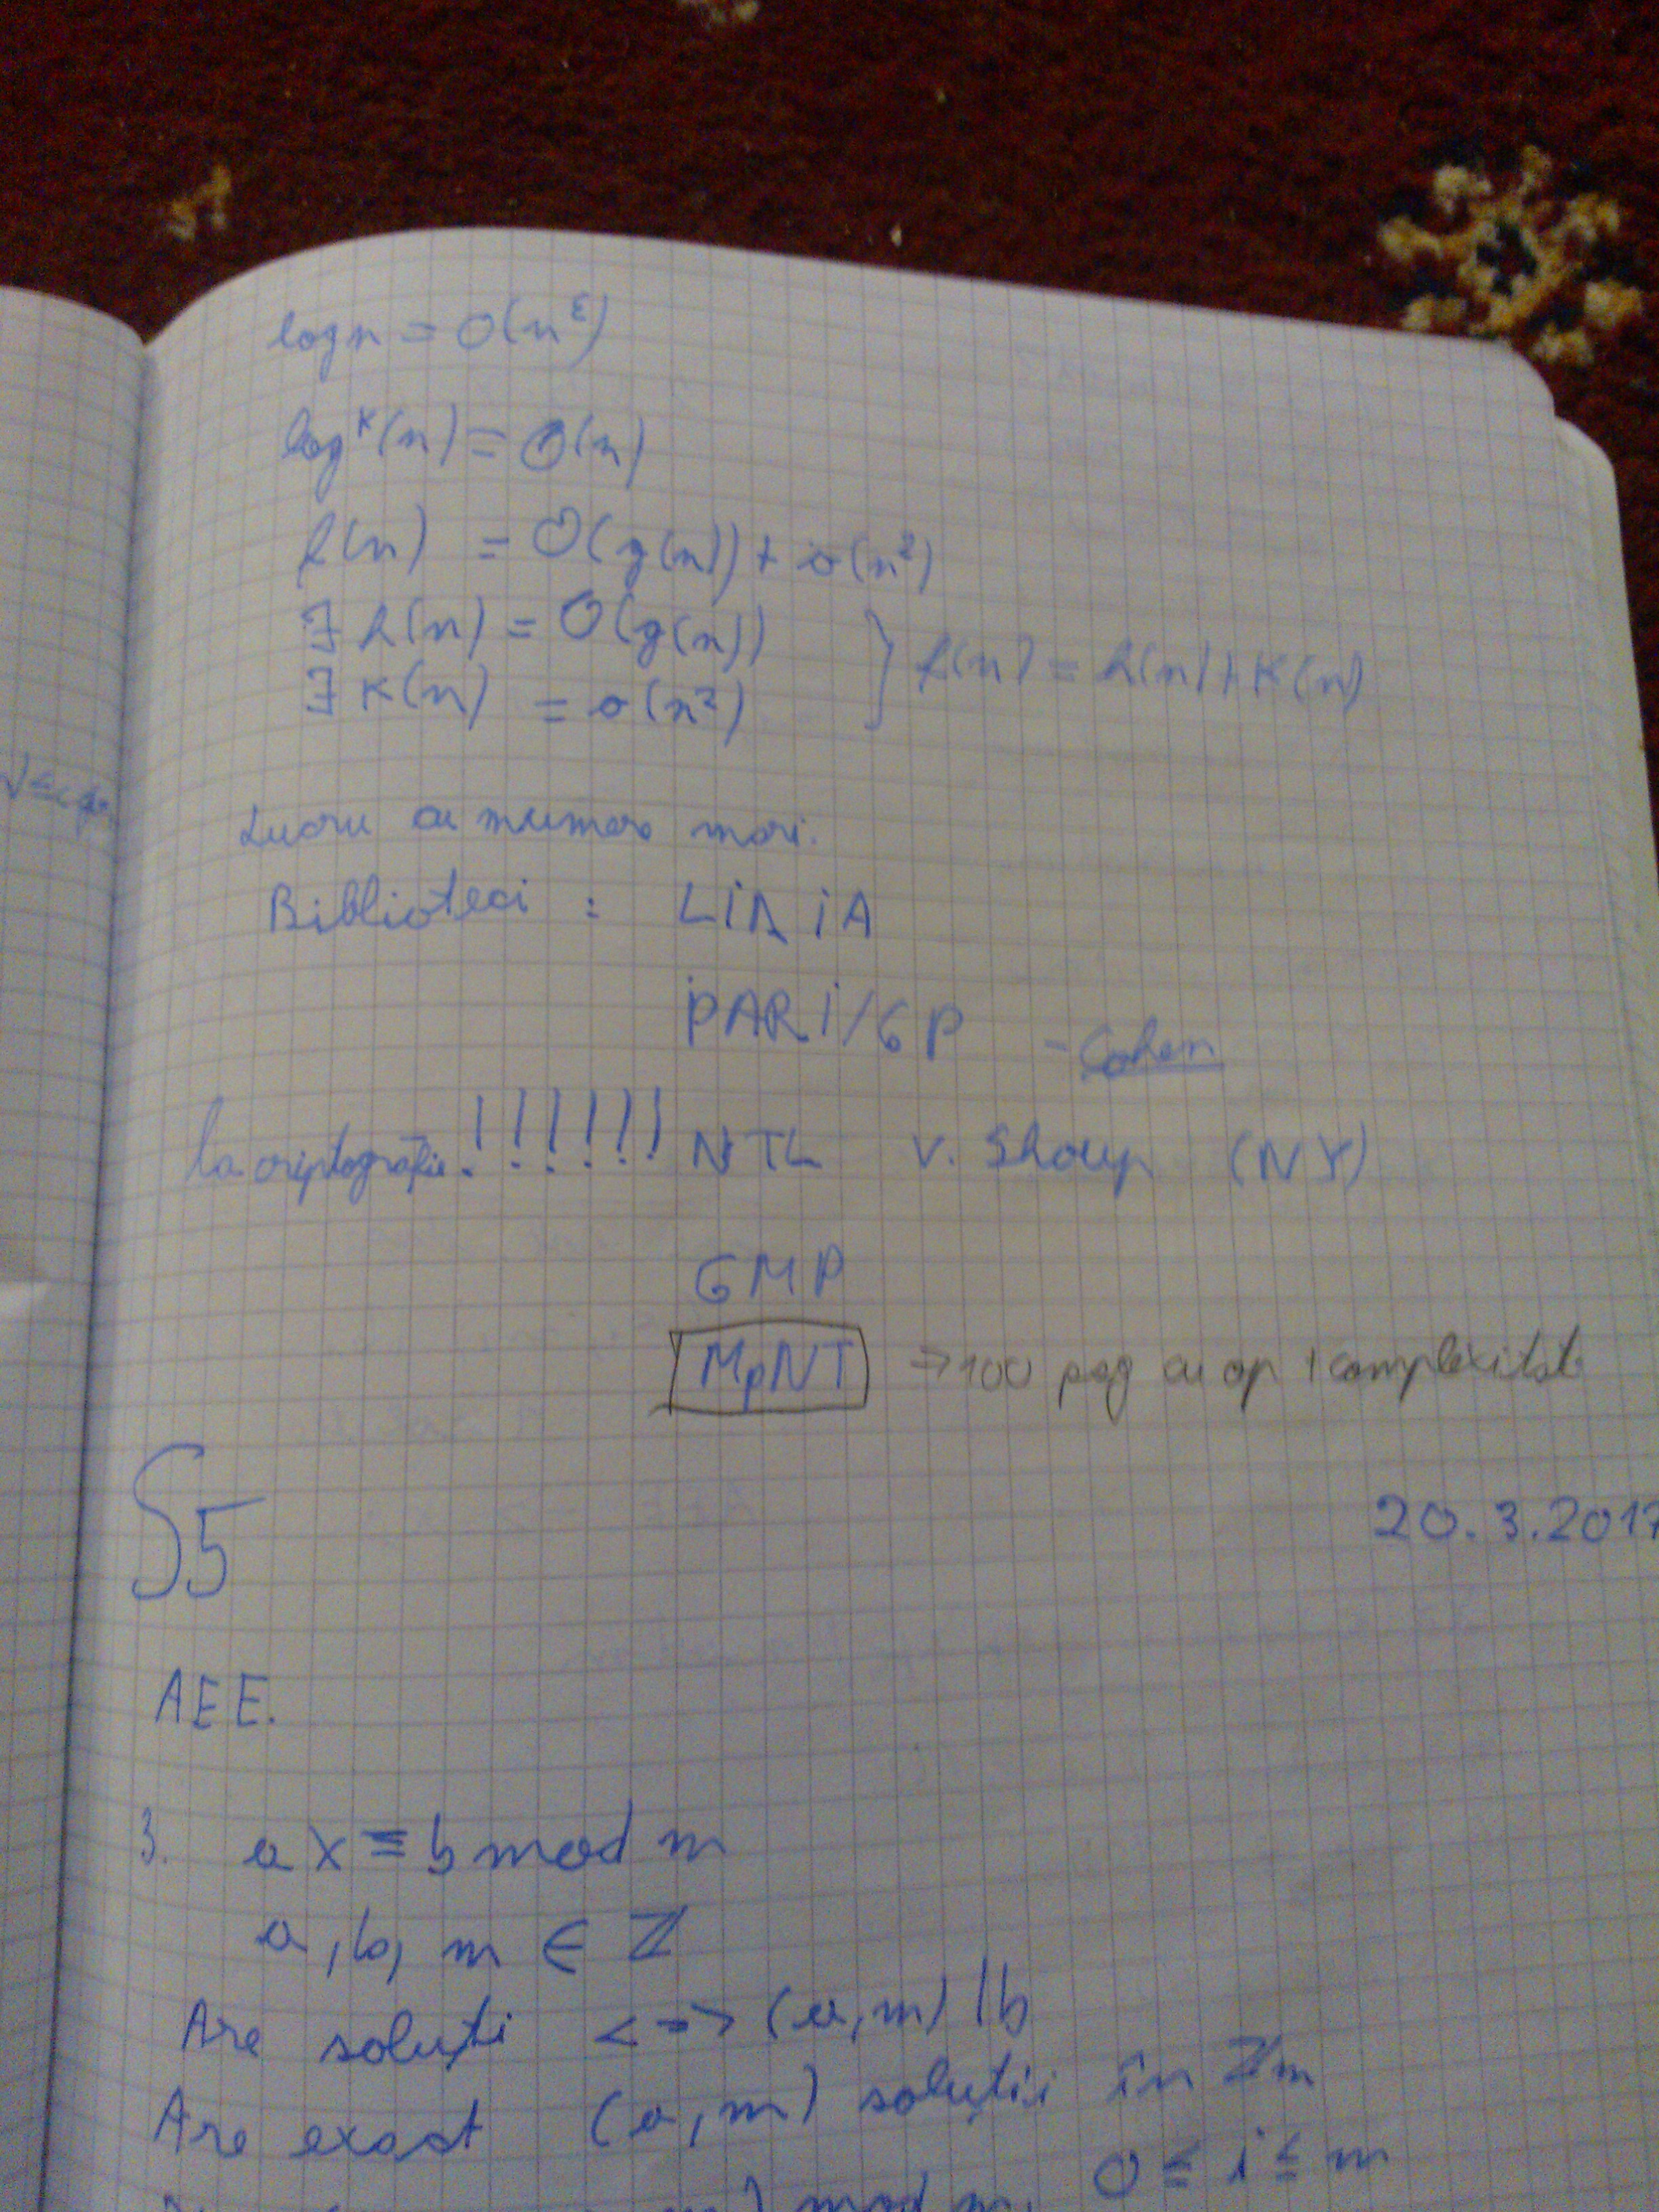 log n = O(n^ε)
log^k(n) = O(n)
f(n) = O(g(n)) + o(n²)
∃ h(n) = O(g(n))
∃ k(n) = o(n²) } f(n) = h(n) + k(n)
Lucru cu numere mari.
Biblioteci : LiDiA
PARI/GP - Cohen
la criptografie !!!!!! NTL V. Shoup (NY)
GMP
MpNT => 100 pag cu op + complexitate
S5
20.3.2017
AEE.
3. ax ≡ b mod m
a, b, m ∈ ℤ
Are soluții <=> (a, m) | b
Are exact (a, m) soluții în ℤm
mod m, 0 ≤ i ≤ m